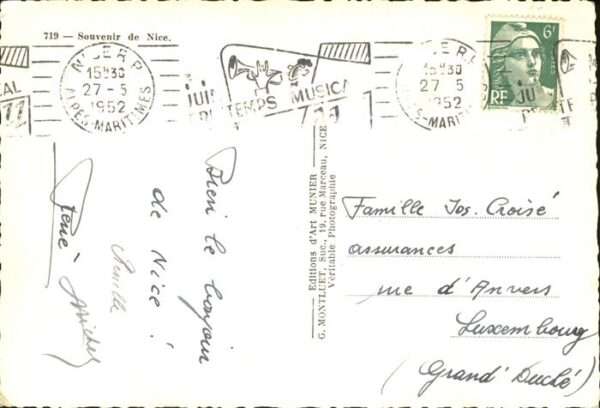 719 — Souvenir de Nice.
NICE R.P.
15H30
27-5
1952
ALPES-MARITIMES
JUI
TEMPS MUSICA
NICE R.P.
15H30
27-5
1952
ALPES-MARITIMES
JUI
6F
RF
Bien le bonjour
de Nice !
René Michel
Editions d'Art MUNIER
G. MONTLUET, Suc., 19, rue Marceau, NICE
Véritable Photographie
Famille Jos. Croisé
assurances
rue d'Anvers
Luxembourg
(Grand' Duché)